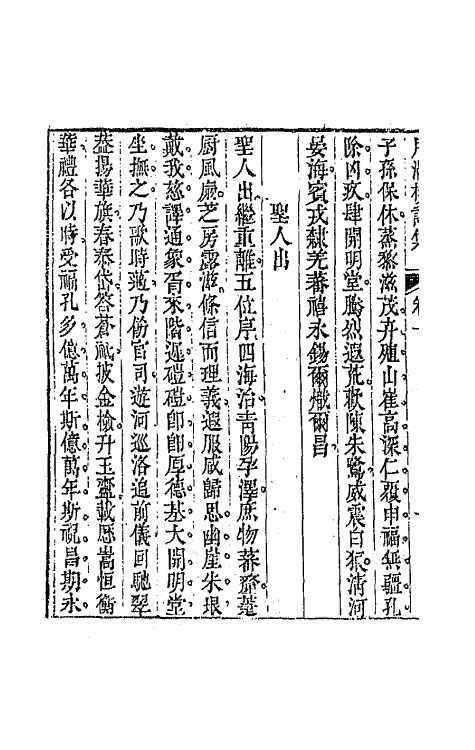 卷一
子孫保休蒸黎滋茂卉殖山崔高深仁覆申福無疆孔
除凶疚肆開明堂騰烈遐荒歌陳朱鷺威震白狼清河
晏海賓戎隸羌蕃禧永錫爾熾爾昌
聖人出
聖人出繼重離五位序四海治青陽孕澤庶物蕃蓂莢
廚風扇芝房露滋條信而理義遐服咸歸思幽崖朱垠
戴我慈譯通象胥來階遲磑磑卽卽厚德基大開明堂
坐撫之乃歌時邁乃飭官司遊河巡洛追前儀回馳翠
葢揚華旗春泰岱答蒼祗披金檢升玉齍載歷嵩恒衡
華禮各以時受福孔多億萬年斯億萬年斯祝昌期永